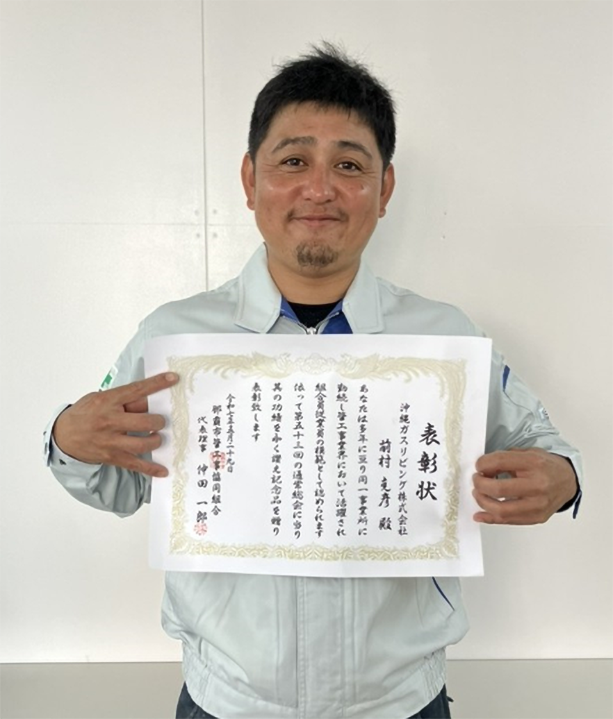 表彰状
沖縄ガスリビング株式会社
前村克彦殿
あなたは多年に亘り同一事業所に
勤続し管工事業界において活躍され
組合員従業員の模範として認められます
依って第五十三回の通常総会に当り
其の功績を永く讃え記念品を贈り
表彰致します
令和七年五月二十九日
那覇市管工事協同組合
代表理事 仲田一郎